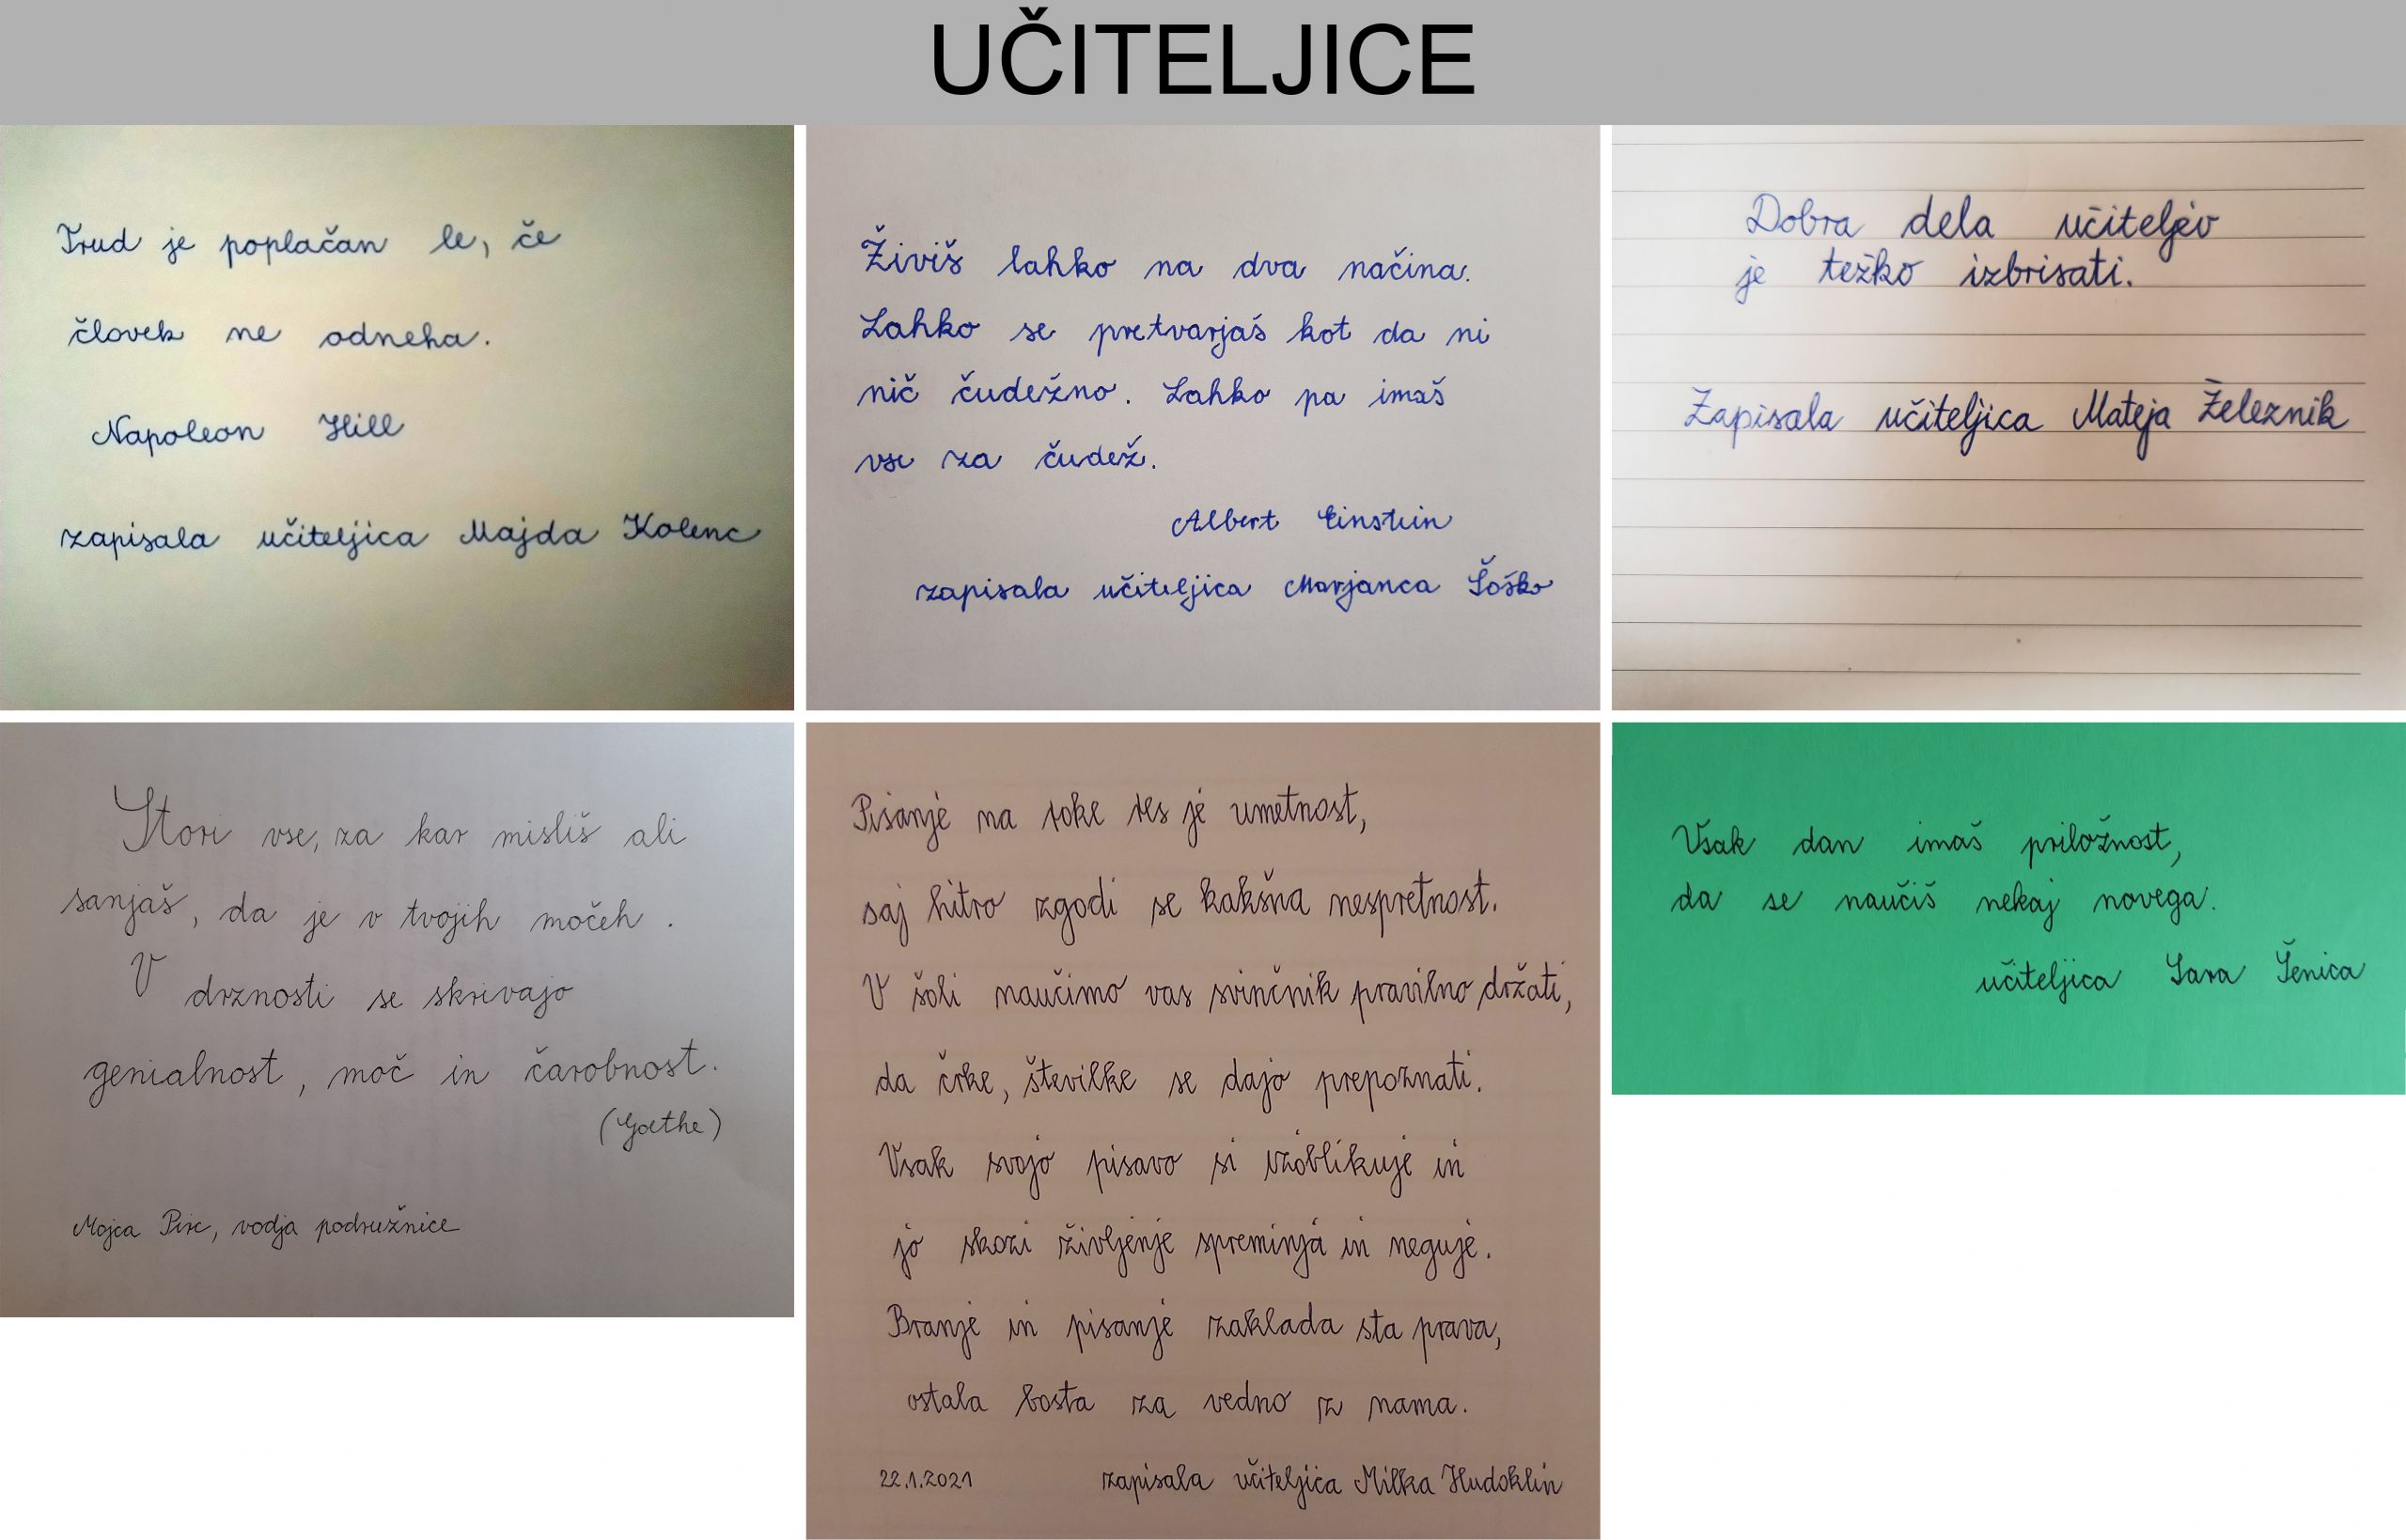 UČITELJICE
Trud je poplačan le, če
človek ne odneha.
Napoleon Hill
zapisala učiteljica Majda Kolenc
Živiš lahko na dva načina.
Lahko se pretvarjaš kot da ni
nič čudežno. Lahko pa imaš
vse za čudež.
Albert Einstein
zapisala učiteljica Marjanca Šoško
Dobra dela učiteljev
je težko izbrisati.
Zapisala učiteljica Mateja Železnik
Stori vse, za kar misliš ali
sanjaš, da je v tvojih močeh.
V drznosti se skrivajo
genialnost, moč in čarobnost.
(Goethe)
Mojca Pirc, vodja podružnice
Pisanje na roke res je umetnost,
saj hitro zgodi se kakšna nespretnost.
V šoli naučimo vas svinčnik pravilno držati,
da črke, številke se dajo prepoznati.
Vsak svojo pisavo si izoblikuje in
jo skozi življenje spreminja in neguje.
Branje in pisanje zaklada sta prava,
ostala bosta za vedno z nama.
22.1.2021 zapisala učiteljica Milka Hudoklin
Vsak dan imaš priložnost,
da se naučiš nekaj novega.
učiteljica Sara Šenica